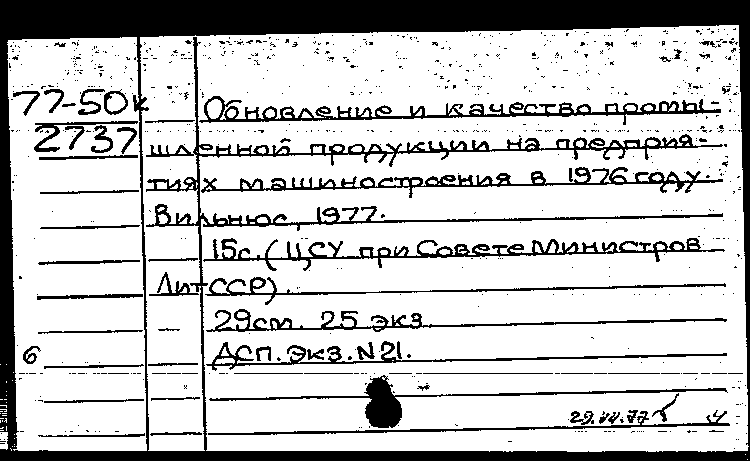 77-50к
2737
Обновление и качество промы-
шленной продукции на предприя-
тиях машиностроения в 1976 году.
Вильнюс, 1977.
15с. (ЦСУ при Совете Министров
ЛитССР).
29см. 25 экз
ДСП. Экз. N 21.
6
29.VII.77